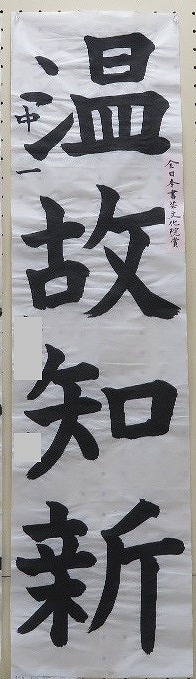 温故知新
全日本書芸文化院賞
中一